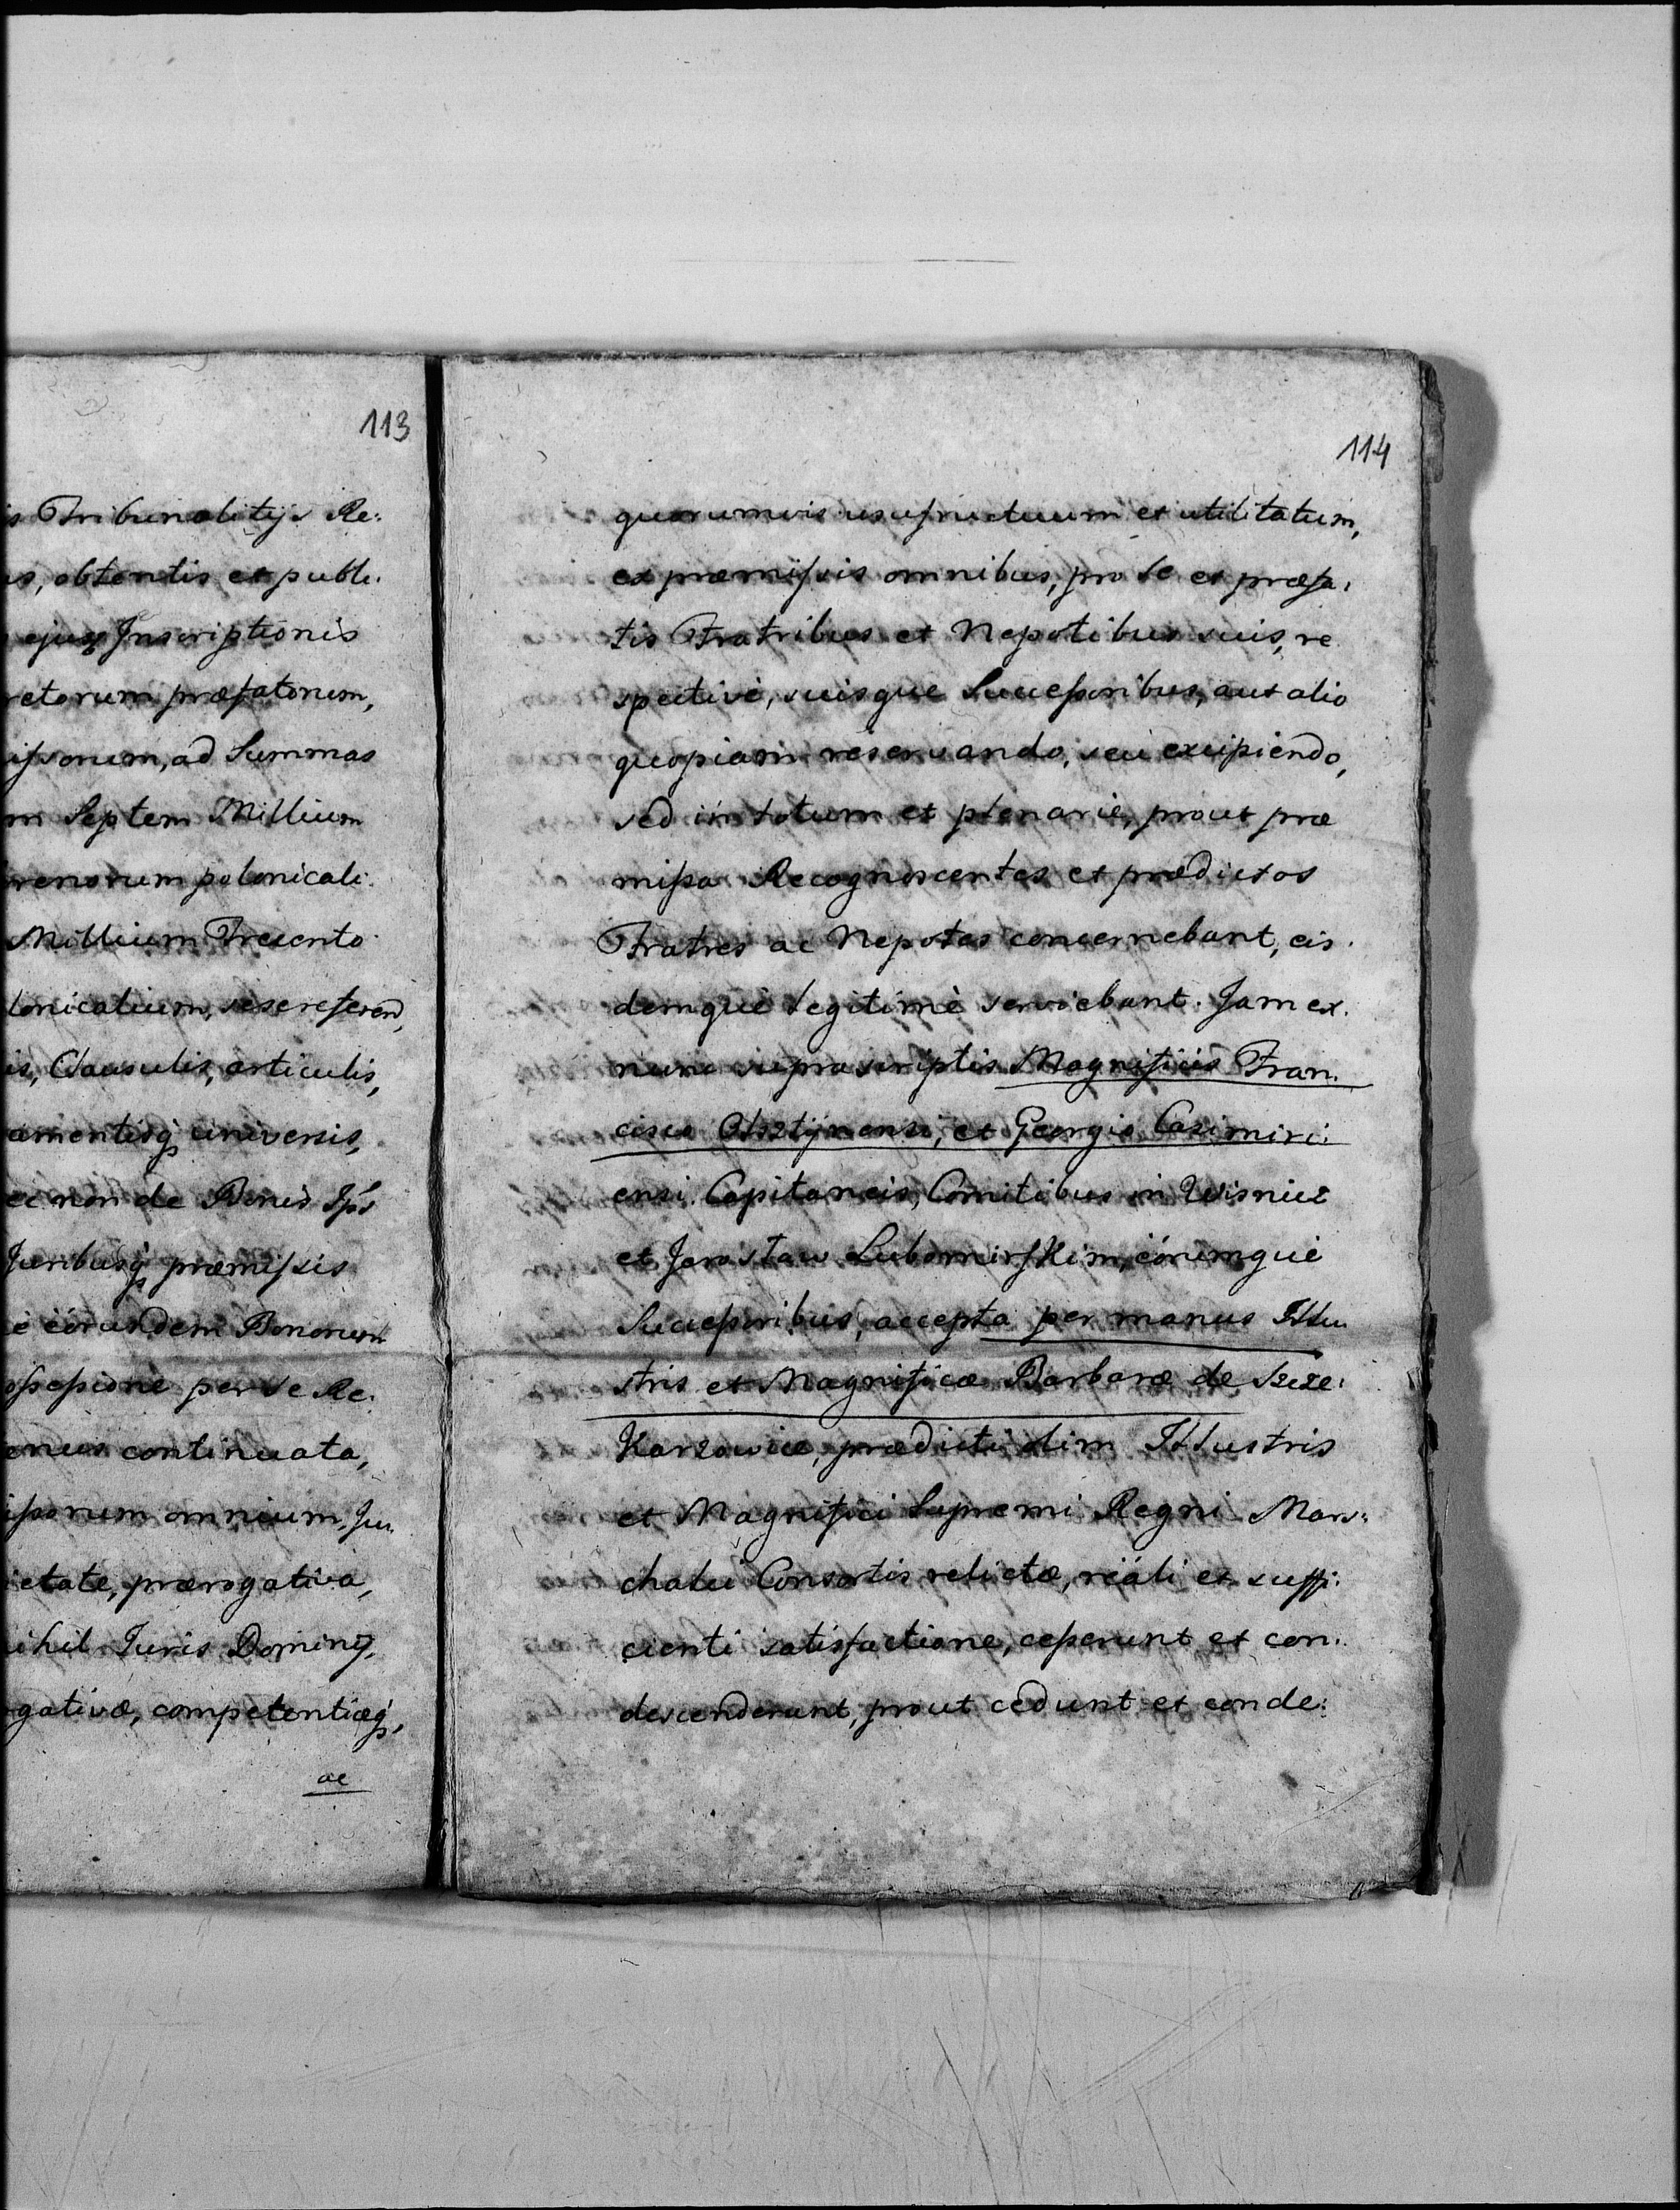 113
s Tribunalitijs Re:
us, obtentis et publi.
ejusq Inscriptionis
retorum præfatorum,
issorum, ad Summas
m Septem Millium
renorum polonicali.
Millium Trecento
lonicalium, sese referend,
is, Clausulis, articulis,
amentisq universis,
ec non de Bonis Ips
Juribusq præmissis
è eorundem Bonorum
ossessione per se Re.
enus continuata,
issorum omnium, Ju.
ietate, prærogativa,
ihil Juris Dominij,
gativæ, competentiæq,
ac
114
quorumvis usufructuum et utilitatum,
ex præmissis omnibus, pro se et præfa.
tis Fratribus et Nepotibus suis, re
spective, suisque Successoribus, aut alio
quopiam reservando, seu excipiendo,
sed in totum et plenarie, prout præ
missa Recognoscentes et prædictos
Fratres ac Nepotes concernebant, eis.
demquè legitimè serviebant. Jam ex.
nunc suprascriptis Magnificis Fran.
cisco Olsztynensi, et Georgio Casimiri:
ensi Capitaneis, Comitibus in Wisnicz
et Jarosław Lubomirskim, eorumquè
Successoribus, accepta per manus Illu
stris et Magnificæ Barbaræ de Szcze:
Karzowice, prædicti olim Illustris
et Magnifici Supremi Regni Mars:
chalci Consortis relictæ, reali et suffi:
cienti satisfactione, cesserunt et con.
descenderunt, prout cedunt et conde: